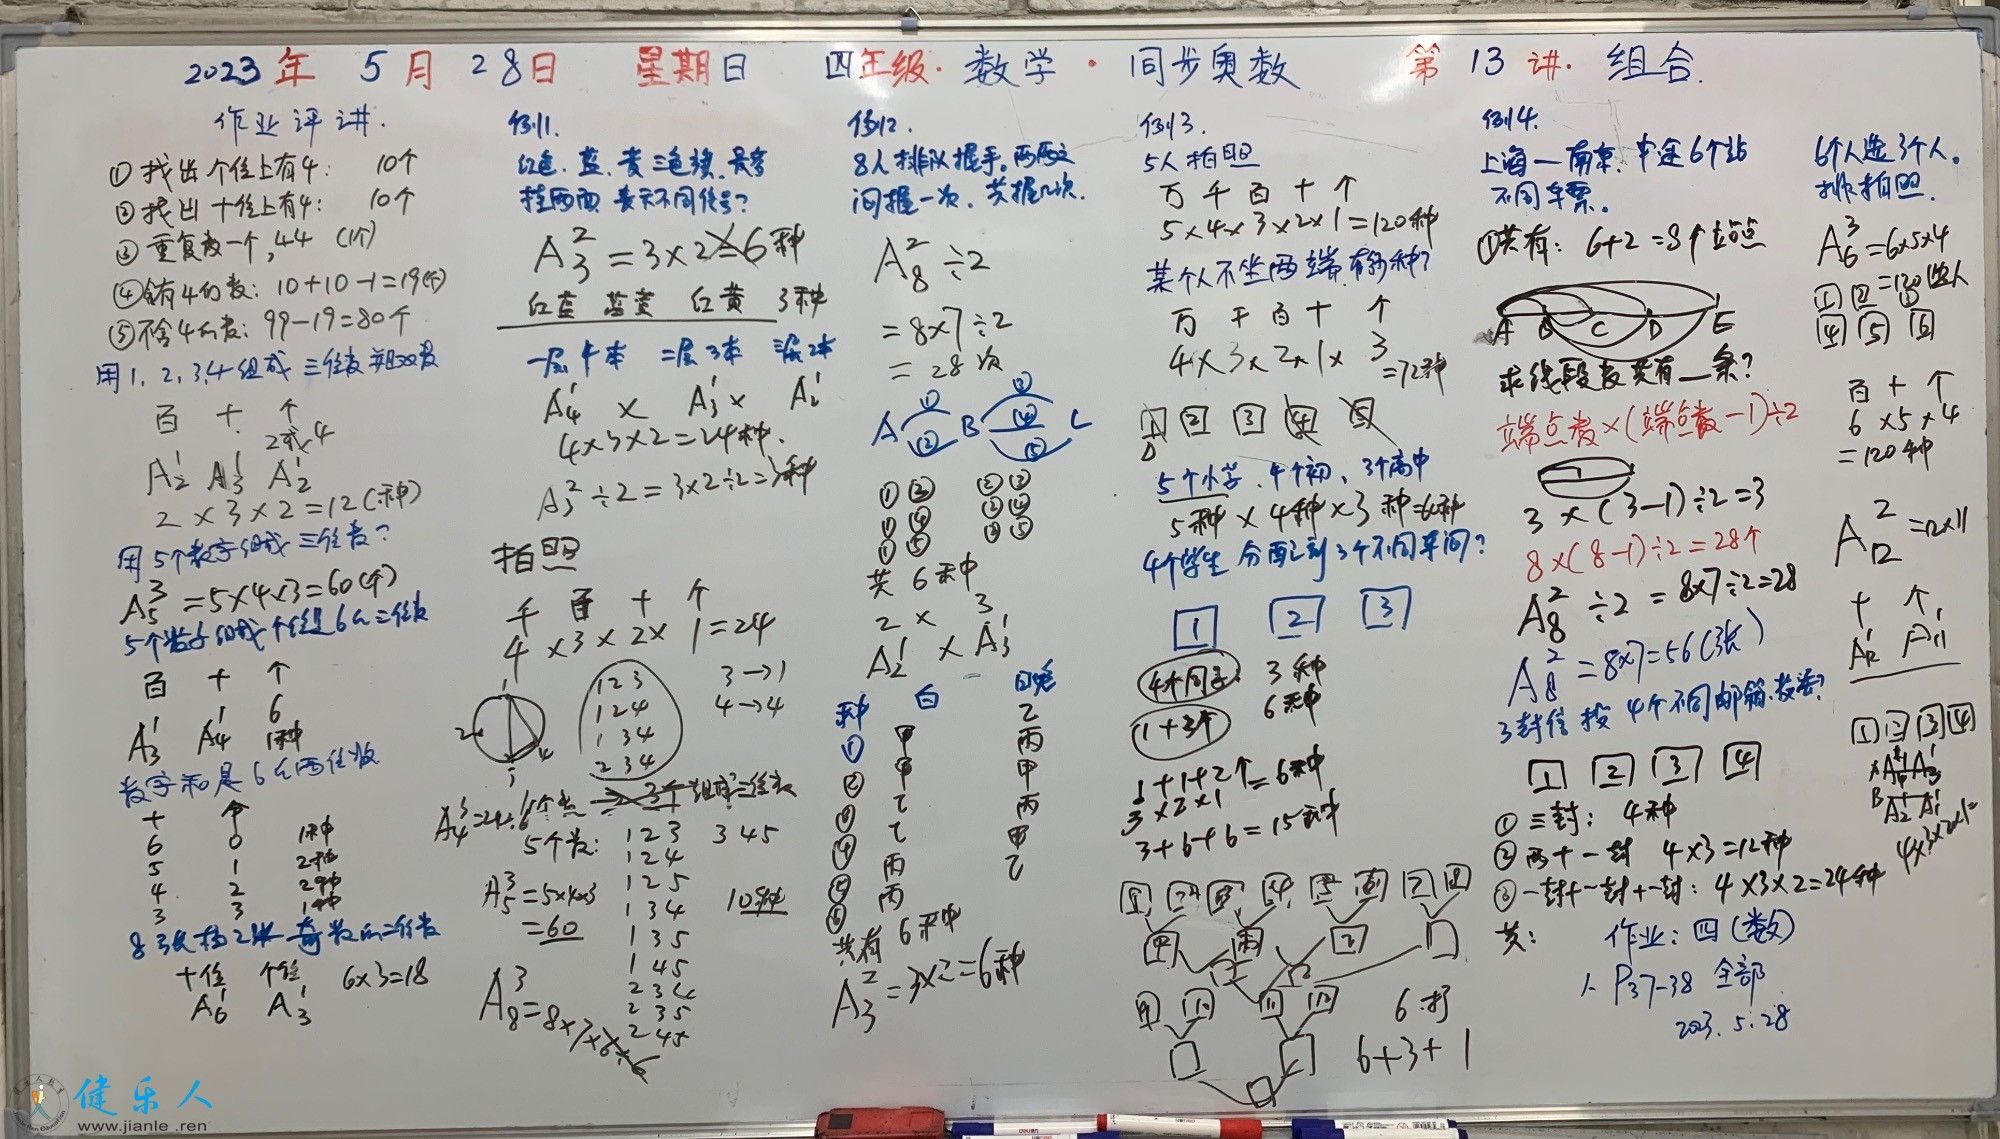 2023年 5月 28日 星期日 四年级·数学·同步奥数 第13讲·组合.
作业评讲.
①找出个位上有4: 10个
②找出十位上有4: 10个
③重复数一个, 44 (1个)
④含有4的数: 10+10-1=19(个)
⑤不含4的数: 99-19=80个
用1,2,3,4组成三位数
百 十 个
2或4
A₂¹ A₃¹ A₂¹
2×3×2=12(种)
用5个数字组成三位数?
A₅³=5×4×3=60(个)
5个数字组成个位是6的三位数
百 十 个
A₃¹ A₄¹ 6
1种
数字和是6的两位数
十 个
6 0 1种
5 1 2种
4 2 2种
3 3 1种
十位 个位 6×3=18
A₆¹ A₃¹
例1.
红色.蓝.黄三色旗.最多
挂两面 表示不同信号?
A₃²=3×2=6种
红蓝 蓝黄 红黄 3种
一层4本 二层3本 三层2本
A₄¹ × A₃¹ × A₂¹
4×3×2=24种.
A₃²÷2=3×2÷2=3种
拍照
千 百 十 个
4×3×2×1=24
1 2 3 4
123
124
134
234
3→1
4→4
A₄³=24
5个数:
123 345
124
125
134
135
145
234
235
245
10种
A₅³=5×4×3
=60
A₈³=8×7×6
例2.
8人排队握手。两两之
间握一次.共握几次.
A₈²÷2
=8×7÷2
=28次
A ① ② B ③ ④ ⑤ C
①③ ②③
①④ ②④
①⑤ ②⑤
共6种
2 × 3
A₂¹ × A₃¹
种 白 晚
① 甲 乙
② 甲 丙
③ 乙 甲
④ 乙 丙
⑤ 丙 甲
⑥ 丙 乙
共有6种
A₃²=3×2=6种
例3.
5人拍照
万 千 百 十 个
5×4×3×2×1=120种
某个人不坐两端.有多少种?
万 千 百 十 个
4×3×2×1×3=72种
1 2 3 4 5
5个小学、4个初、3个高中
5种×4种×3种=60种
4个学生分配到3个不同车间?
1 2 3
4个同学: 3种
1+3个 6种
1+1+2个=6种
3×2×1
3+6+6=15种
6场
6+3+1
例4.
上海—南京.中途6个站
不同车票。
①共有: 6+2=8个站点
A B C D E
求线段数共有__条?
端点数×(端点数-1)÷2
3×(3-1)÷2=3
8×(8-1)÷2=28个
A₈²÷2=8×7÷2=28
A₈²=8×7=56(张)
3封信投4个不同邮箱.投法?
1 2 3 4
①三封: 4种
②两+一封 4×3=12种
③一封+一封+一封: 4×3×2=24种
共:
作业: 四(数)
1. P37-38 全部
2023.5.28
6个人选3个人。
排拍照.
A₆³=6×5×4
=120
1 2 3
4 5 6
百 十 个
6×5×4
=120种
A₁₂²=12×11
十 个
A₁₂¹ A₁₁¹
1 2 3 4
健乐人
www.jianle.ren